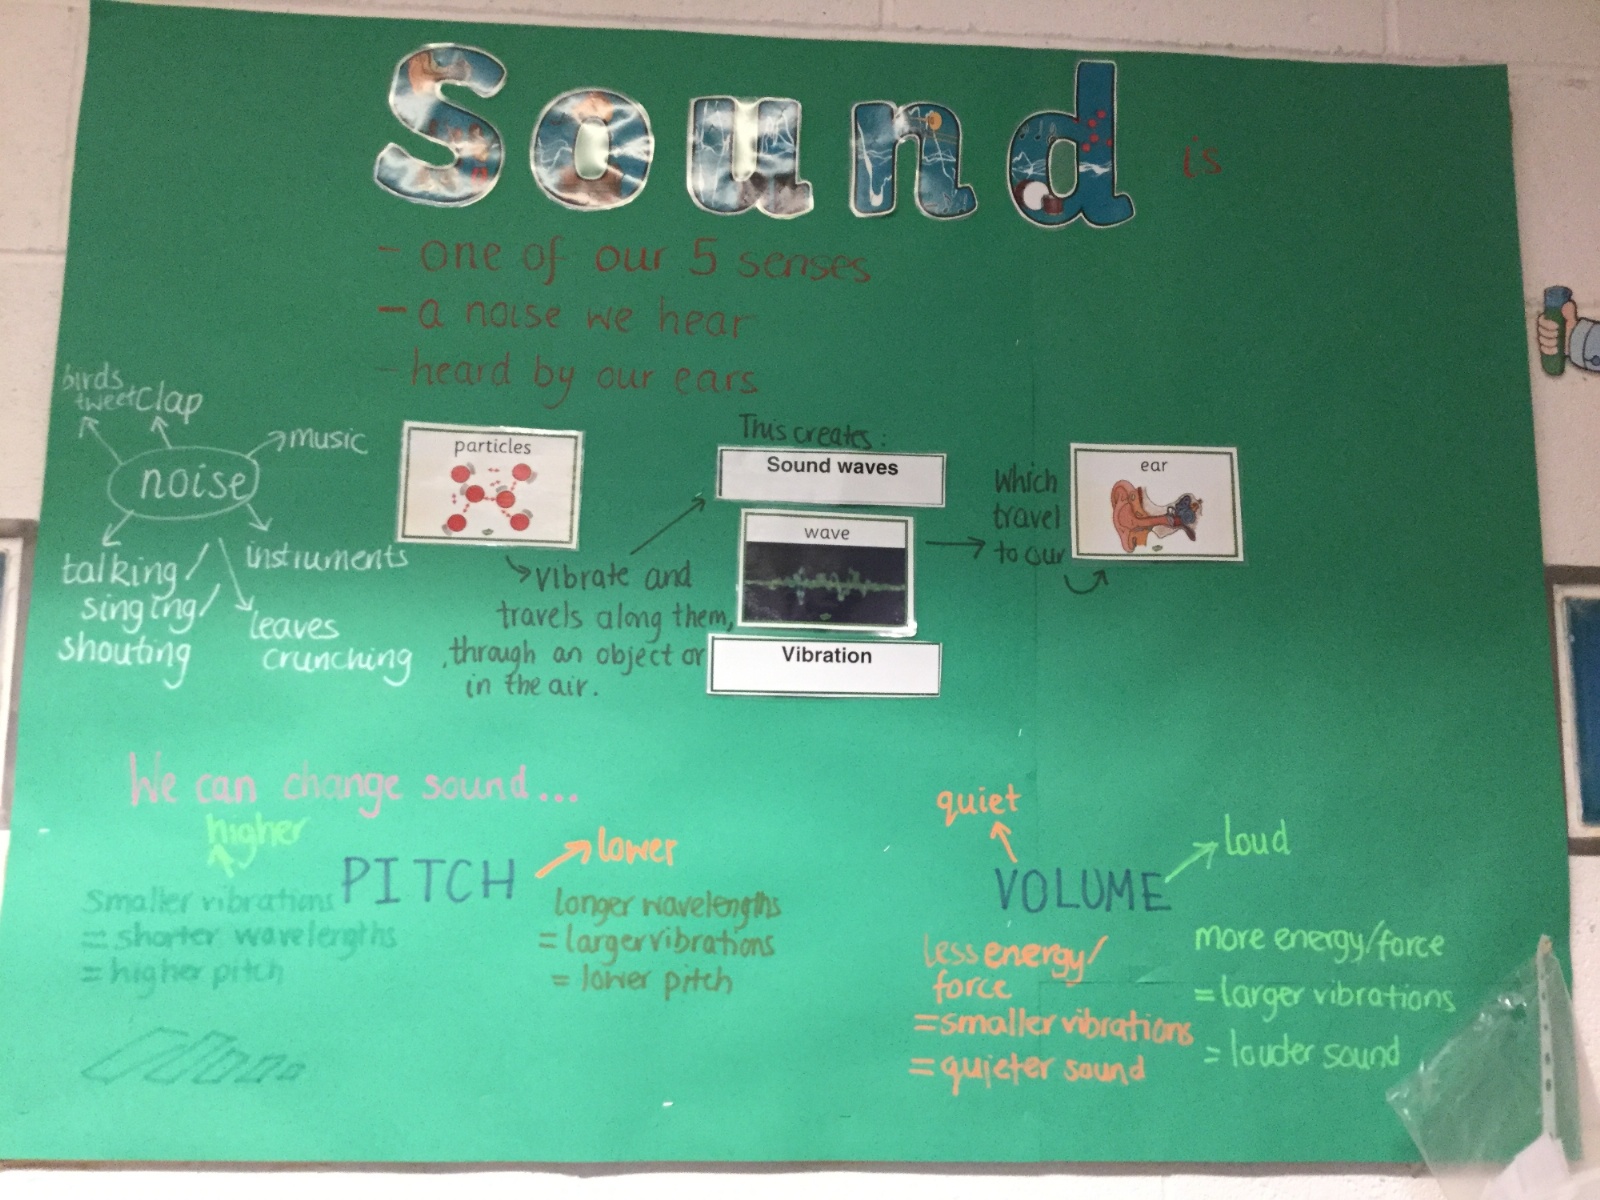 Sound is
- one of our 5 senses
- a noise we hear
- heard by our ears
birds
tweet
clap
music
noise
talking/
singing/
shouting
instruments
leaves
crunching
particles
vibrate and
travels along them,
through an object or
in the air.
This creates:
Sound waves
wave
Vibration
Which
travel
to our
ear
We can change sound...
higher
PITCH
lower
Smaller vibrations
= shorter wavelengths
= higher pitch
longer wavelengths
= larger vibrations
= lower pitch
quiet
VOLUME
Loud
less energy/
force
=smaller vibrations
= quieter sound
more energy/force
= larger vibrations
= louder sound